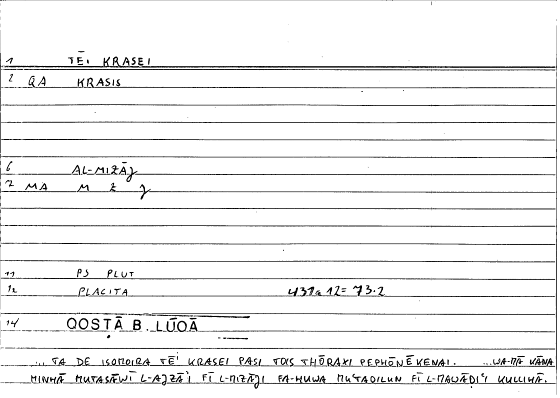 1 TĒI KRASEI
2 QA KRASIS
6 AL-MIZĀJ
7 MA M Z J
11 PS PLUT
12 PLACITA 437a 12 = 73.2
14 QOSṬĀ B. LŪQĀ
... TA DE ISOMOIRA TĒI KRASEI PASI TOIS THŌRAXI PEPHŌNĒKENAI. ... WA-MĀ KĀNA
MINHĀ MUTASĀWĪ L-AJZĀ'I FĪ L-MIZĀJI FA-HUWA MU'TADILUN FĪ L-MAWĀḌI'I KULLIHĀ.